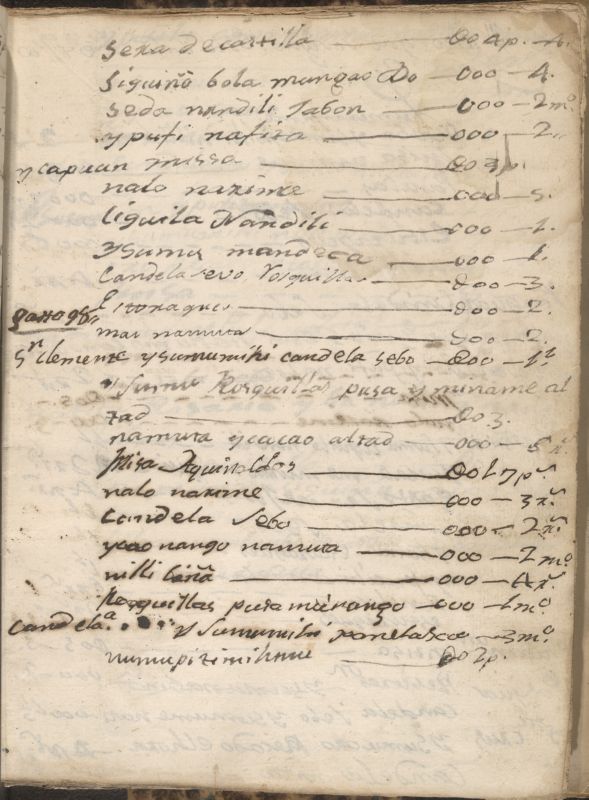 Sera de castilla — 004p. 4.
siguiñō bola mungao do — 000 — 4.
seda nandili Jabon — 000 — 2mo
y puti nafira — 000 — 2
y capuan missa — 003p.
nalo naxime — 000 — s.
liquila Nandili — 000 — 1.
ysumu mandeca — 000 — 1.
Candela sevo Rosquillas — 000 — 3.
000 — 2.
gasto 98
mai namuta — 000 — 2.
Sn Clemente ysumumihi candela sebo — 000 — 1
Sumu Rosquillas pusa y miname al
tad — 003.
namuta ycacao altad — 000 — 5 rs
Misa Aguinaldos — 0017ps.
nalo naxime — 000 — 3rs.
Candela Sebo — 000 — 2rs.
ycao nango namuta — 000 — 2mo.
nilli — 000 — 4rs.
Rosquillas pusa mirango — 000 — 1mo
Candela. y Sumumihi — 3mo
— 002p.